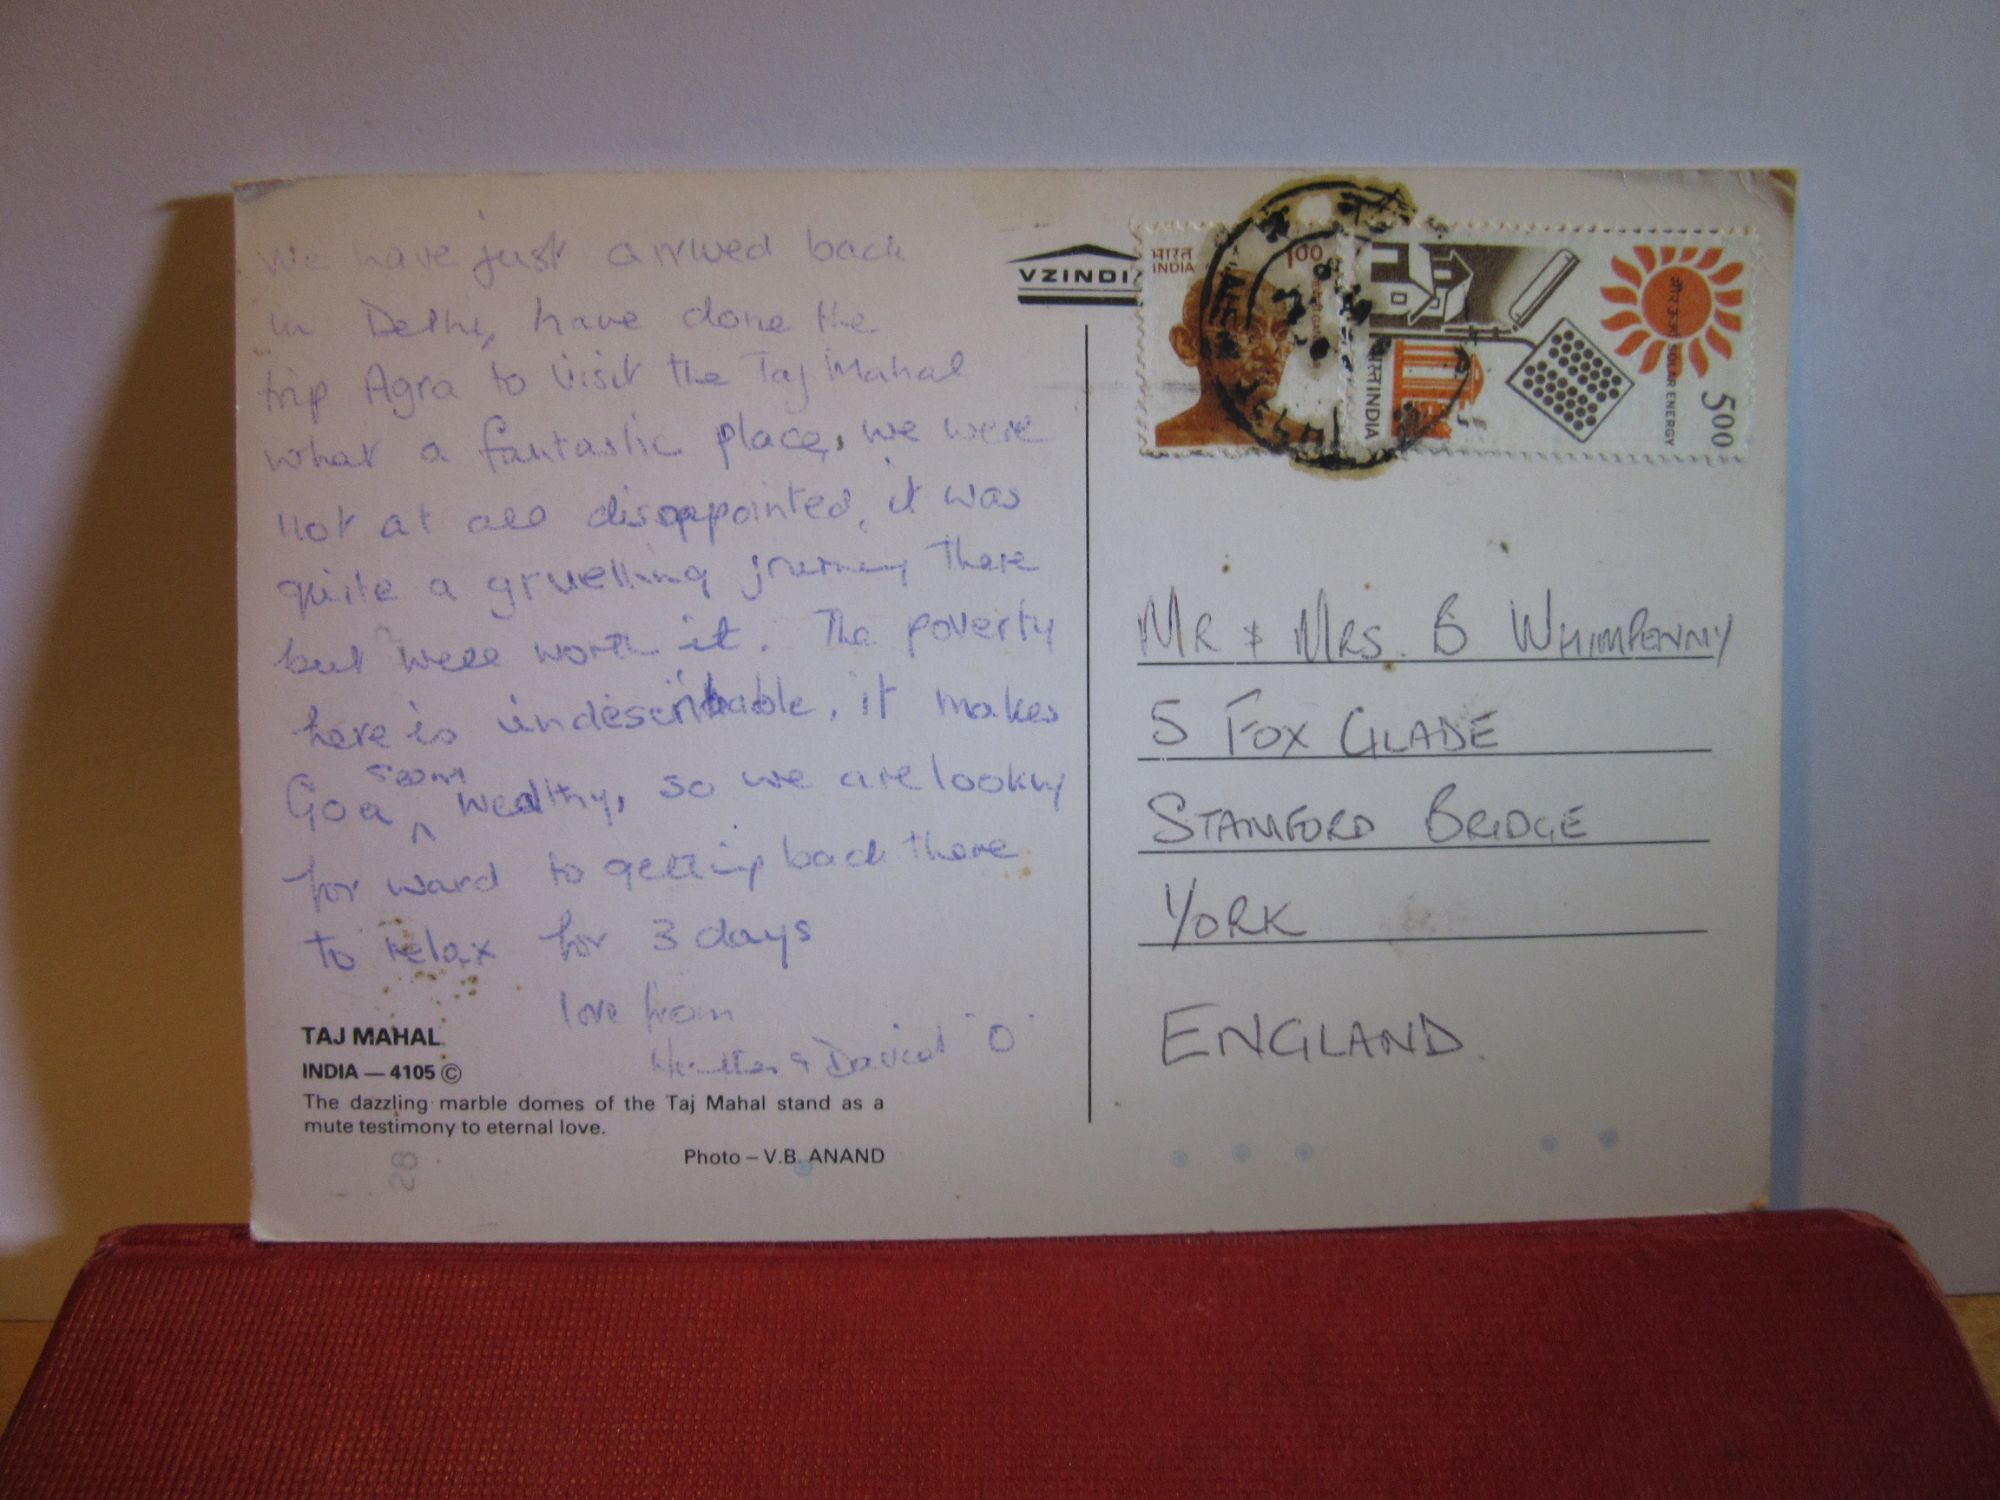 We have just arrived back
in Delhi, have done the
trip Agra to visit the Taj Mahal
what a fantastic place, we were
not at all disappointed, it was
quite a gruelling journey there
but well worth it. The poverty
here is undescribable, it makes
Goa seem wealthy, so we are looking
forward to getting back there
to relax for 3 days
love from
& David "O"
TAJ MAHAL
INDIA — 4105 ©
The dazzling marble domes of the Taj Mahal stand as a
mute testimony to eternal love.
Photo – V.B. ANAND
28
VZINDIA
भारत
INDIA
1.00
भारत INDIA
सौर ऊर्जा SOLAR ENERGY
500
MR & MRS. B WHIMPENNY
5 FOX GLADE
STAMFORD BRIDGE
YORK
ENGLAND.